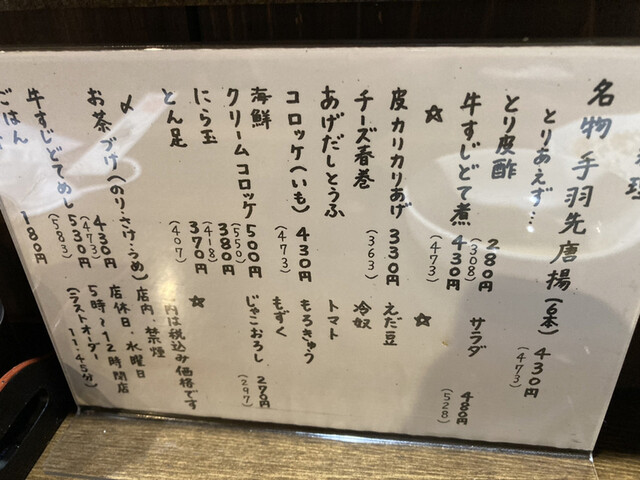 料理
名物 手羽先唐揚(6本) 430円
(473)
とりあえず…
とり皮酢 280円
(308)
牛すじどて煮 430円
(473)
サラダ 480円
(528)
☆
☆
皮カリカリあげ 330円
(363)
えだ豆
チーズ春巻
冷奴
あげだしとうふ
トマト
コロッケ(いも) 430円
(473)
もろきゅう
海鮮
クリームコロッケ 500円
(550)
もずく
にら玉 380円
(418)
じゃこおろし 270円
(297)
とん足 370円
(407)
☆
内は税込み価格です
〆
店内・禁煙
お茶づけ(のり・さけ・うめ) 430円
(473)
店休日・水曜日
牛すじどてめし 530円
(583)
5時〜12時閉店
(ラストオーダー 11.45分)
ごはん 180円